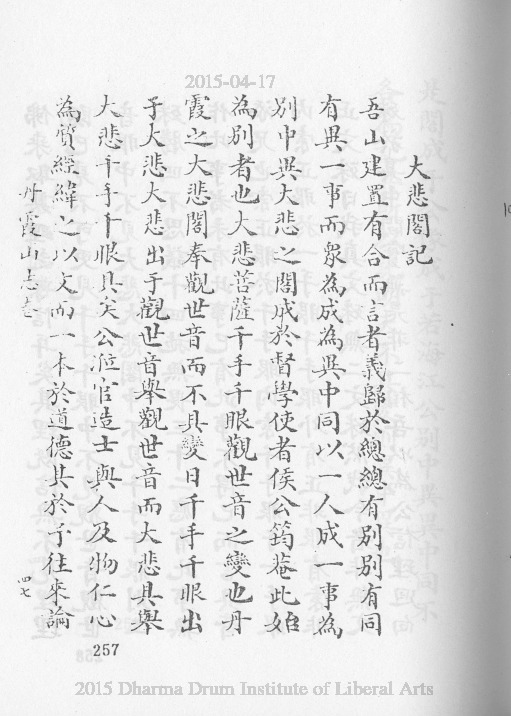 2015-04-17
大悲閣記
吾山建置有合而言者義歸於總總有別別有同
有異一事而衆為成為異中同以一人成一事為
別中異大悲之閣成於督學使者侯公筠菴此始
為別者也大悲菩薩千手千眼觀世音之變也丹
霞之大悲閣奉觀世音而不具變日千手千眼出
于大悲大悲出于觀世音舉觀世音而大悲具舉
大悲千手千眼具矣公涖官造士與人及物仁心
為質經緯之以文而一本於道德其於予往來論
丹霞山志卷
四七
257
2015 Dharma Drum Institute of Liberal Arts